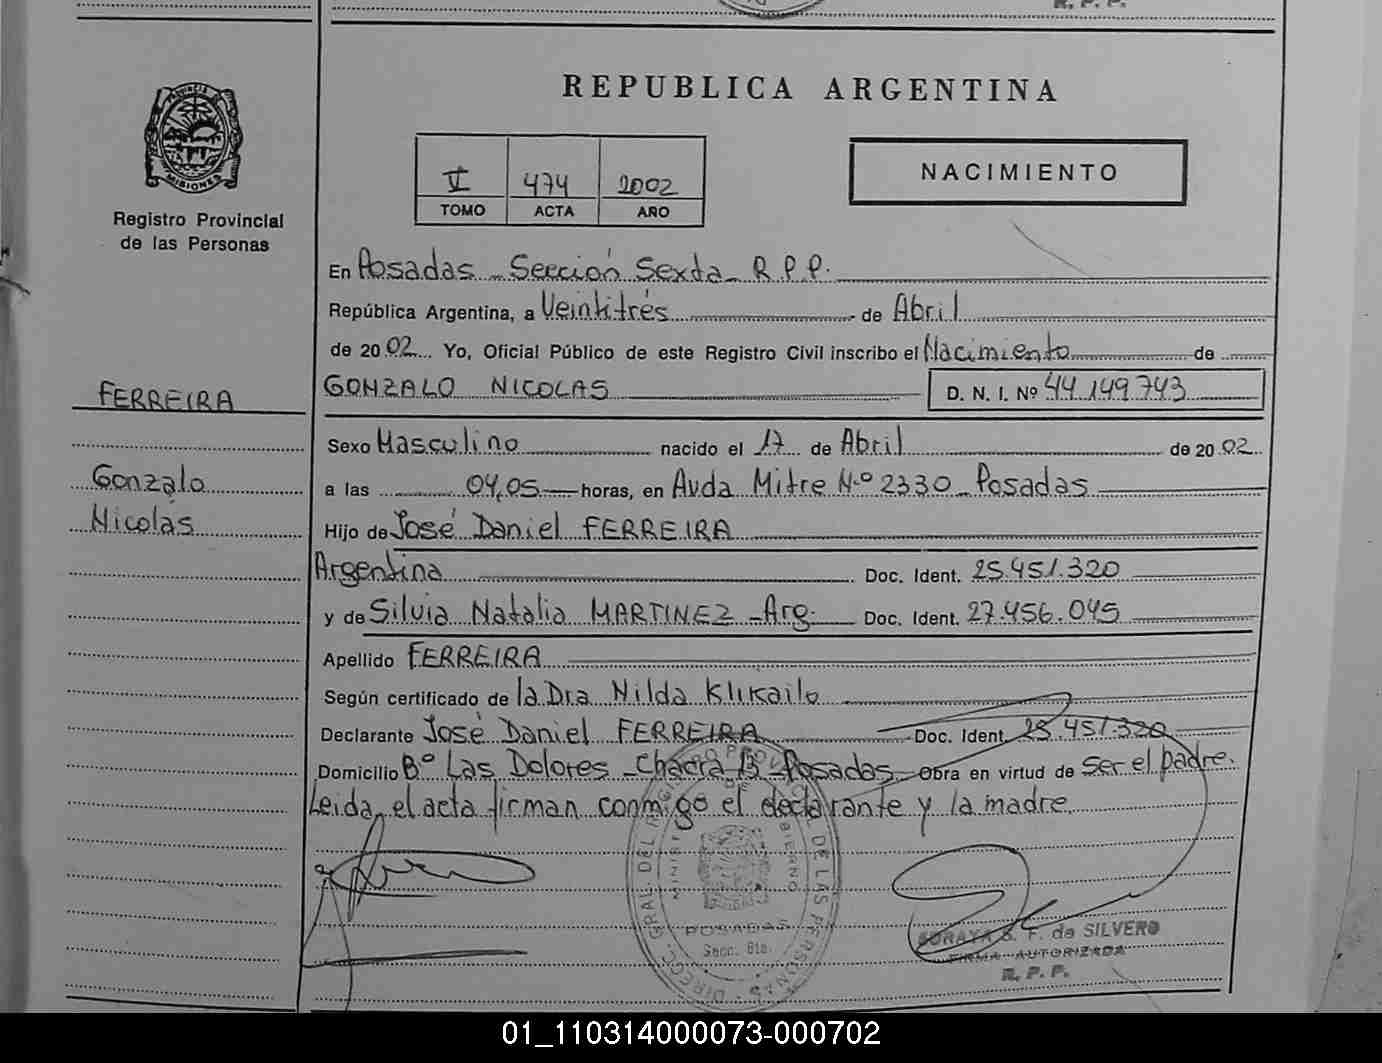 R. P. P.
REPUBLICA ARGENTINA
PROVINCIA DE
MISIONES
Registro Provincial
de las Personas
V 474 2002
TOMO ACTA AÑO
NACIMIENTO
En Posadas - Sección Sexta - R.P.P.
República Argentina, a Veintitrés de Abril
de 2002 Yo, Oficial Público de este Registro Civil inscribo el Nacimiento de
FERREIRA
GONZALO NICOLAS D. N. I. Nº 44.149.743
Sexo Masculino nacido el 17 de Abril de 2002
Gonzalo
Nicolás
a las 04,05 horas, en Avda Mitre N.º 2330 - Posadas
Hijo de José Daniel FERREIRA
Argentina Doc. Ident. 25.451.320
y de Silvia Natalia MARTINEZ - Arg. Doc. Ident. 27.456.045
Apellido FERREIRA
Según certificado de la Dra Nilda Klikailo
Declarante José Daniel FERREIRA Doc. Ident. 25.451.320
Domicilio Bº Las Dolores - Chacra 13 - Posadas. Obra en virtud de Ser el padre.
Leida el acta firman conmigo el declarante y la madre.
DIRECC. GRAL DEL REGISTRO PROVINCIAL DE LAS PERSONAS
POSADAS
Secc. 6ta.
SORAYA S. F. de SILVERO
FIRMA AUTORIZADA
R. P. P.
01_110314000073-000702